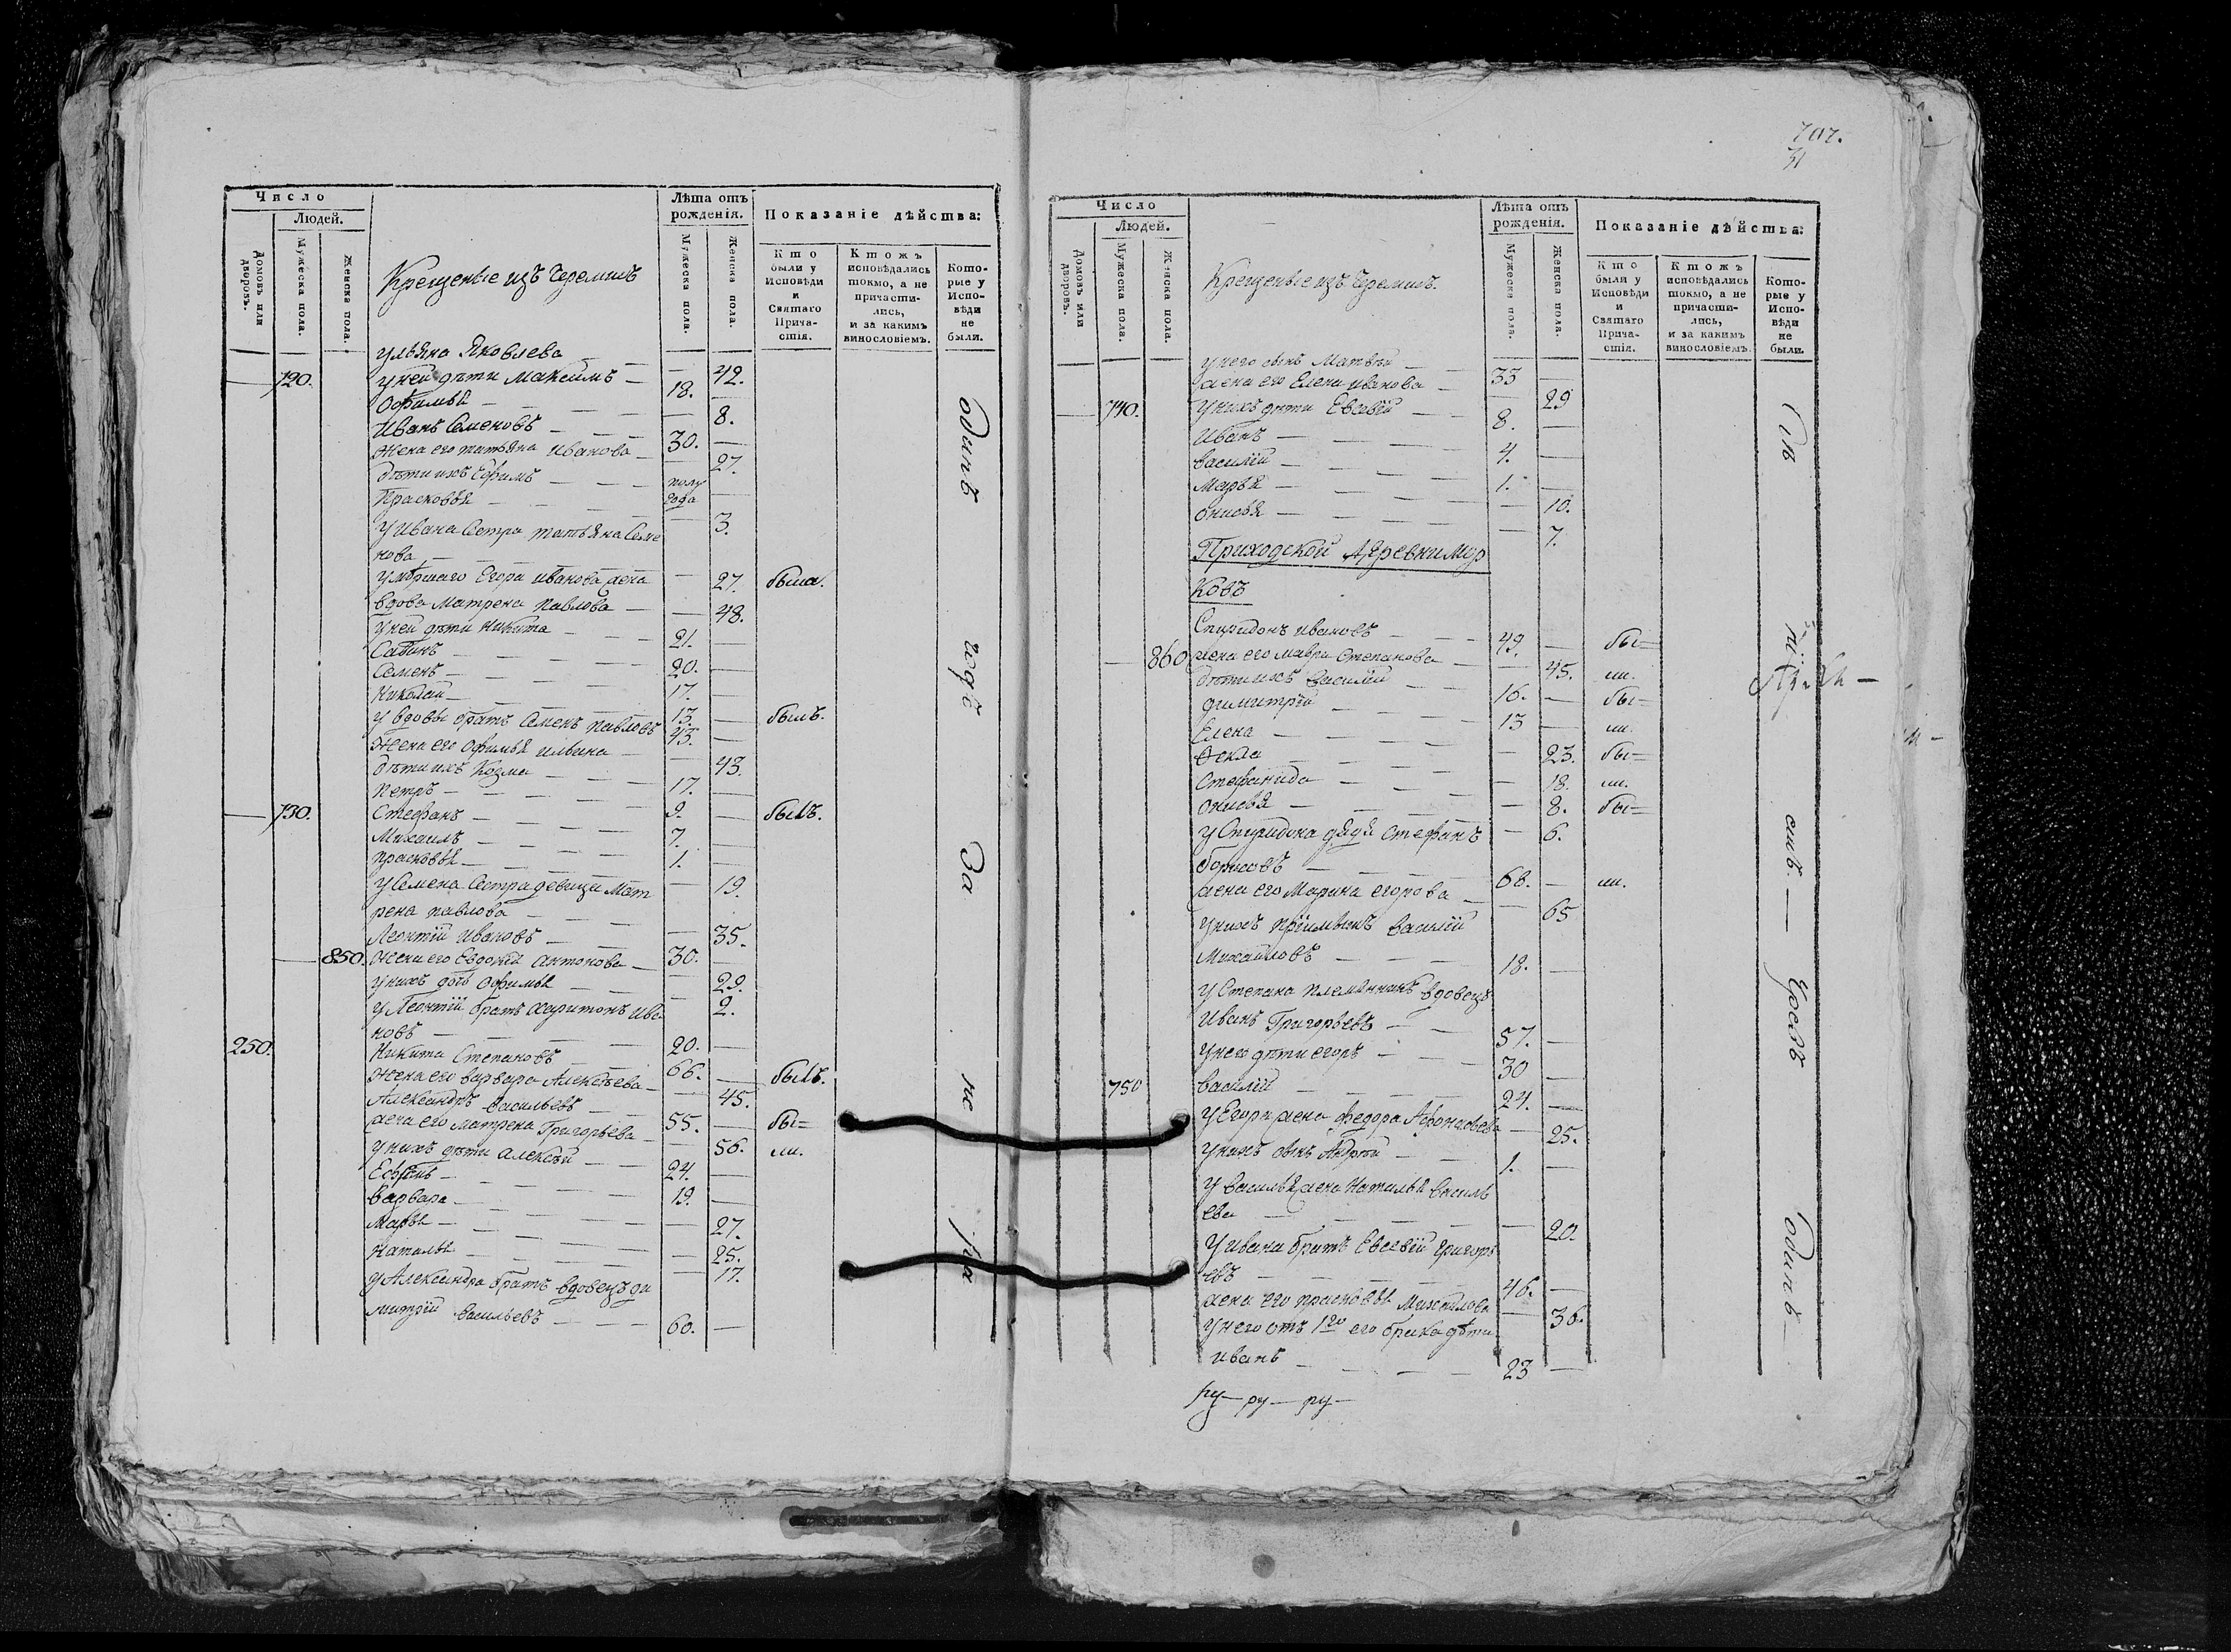 Число
Людей.
Домовъ или дворовъ.
Мужеска пола.
Женска пола.
Крещеные изъ Черемисъ
Лѣта отъ рожденія.
Мужеска пола.
Женска пола.
Показаніе дѣйства:
Кто были у Исповѣди и Святаго Причастія.
Ктожъ исповѣдались токмо, а не причастились, и за какимъ винословіемъ.
Которые у Исповѣди не были.
Ульяна Яковлева — — 42.
720. у ней дѣти Максимъ — 18. —
Офимья — — 8.
Иванъ Семеновъ — 30. —
Жена его татьяна Иванова — — 27.
дѣти ихъ Ефимъ — полу года —
Прасковья — — 3.
У Ивана Сестра татьяна Семе
нова — — 27. была.
умершаго Егора Иванова жена
вдова Матрена Павлова — — 48.
У ней дѣти Никита — 21. —
Савинъ — 20. —
Семенъ — 17. —
Николай — 13. — былъ.
У вдовы братъ Семенъ Павловъ 45. —
Жена его Офимья ильина — — 43.
дѣти ихъ Козма — 17. —
Петръ — 9. — былъ.
730. Стефанъ — 7. —
Михаилъ — 1. —
Прасковья — — 19.
У Семена Сестра девица Мат
рена павлова — — 35.
Леонтій Ивановъ — 30. —
850. Жена его Евдокія Антонова — — 29.
у нихъ дочь Офимья — — 2.
у Леонтія братъ Харитонъ Ива
новъ — 20. —
250. Никита Степановъ — 66. — былъ.
Жена его варвара Алексѣева — — 45.
Александръ Васильевъ — 55. — бы=
жена его Матрена Григорьева — — 56. ли.
у нихъ дѣти Алексѣй — 24. —
Ефремъ — 19. —
Варвара — — 27.
Марья — — 25.
Наталья — — 17.
у Александра братъ вдовецъ ди
митрій Васильевъ — 60. —
одинъ
годъ
За
не
ра
707.
31
Число
Людей.
Домовъ или дворовъ.
Мужеска пола.
Женска пола.
Крещеные изъ Черемисъ.
Лѣта отъ рожденія.
Мужеска пола.
Женска пола.
Показаніе дѣйства:
Кто были у Исповѣди и Святаго Причастія.
Ктожъ исповѣдались токмо, а не причастились, и за какимъ винословіемъ.
Которые у Исповѣди не были.
у него сынъ Матвѣй — 33 —
жена его Елена Иванова — — 29
740. У нихъ дѣти Евсевій — 8. —
Иванъ — 4. —
Василій — 1. —
Марья — — 10.
Онисья — — 7.
Приходской Деревни Мур
ковъ
Спиридонъ Ивановъ — 49. — бы=
860 жена его мавра Степанова — — 45. ли.
дѣти ихъ Василій — 16. — бы=
димитрій — 13 — ли.
Елена — — 23. бы=
Фекла — — 18. ли.
Стефанида — — 8. бы=
Онисья — — 6.
У Спиридона дядя Стефанъ
борисовъ — 68. — ли.
жена его Марина егорова — — 65
у нихъ пріимышъ Василій
Михайловъ — 18. —
у Степана племянникъ вдовецъ
Иванъ Григорьевъ — 57. —
у него дѣти егоръ — 30 —
750 Василій — 24. —
у Егора жена Федора Афонасьева — 25.
у нихъ сынъ Андрей — 1. —
у Василья жена Наталья Василь
ева — — 20.
У ивана братъ Евсевій Григорь
евъ — 46. —
жена его прасковья Михайлова — 36.
у него отъ 1го его брака дѣти
иванъ — 23 —
ру — ру — ру —
Чрезъ
одинъ